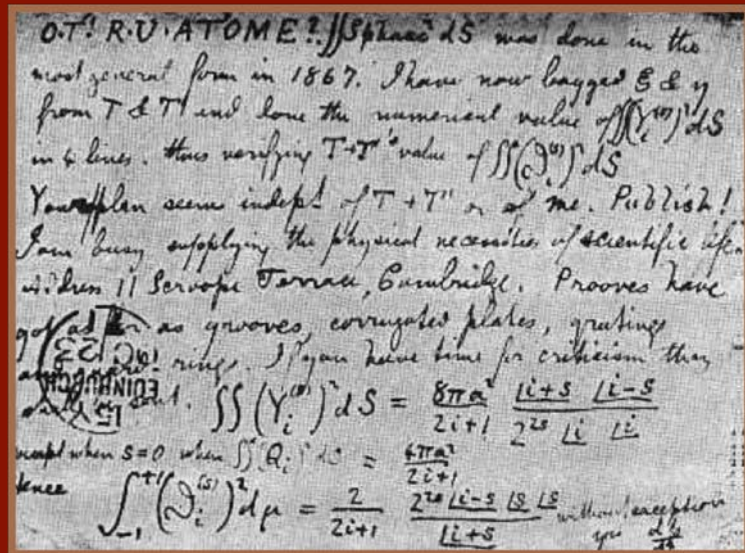 O.T! R.U. ATOME? ∬Spharc² dS was done in the
most general form in 1867. I have now bagged ξ & η
from T & T' and done the numerical value of ∬(Y_i^(s))² dS
in 4 lines. thus verifying T+T''s value of ∬(ϑ_i^(s))² dS
Your plan seems indept. of T + T' or of me. Publish!
I am busy supplying the physical necessities of scientific life.
address 11 Scroope Terrace, Cambridge. Prooves have
got as far as grooves, corrugated plates, gratings
rings. If you have time for criticism then
sent. ∬(Y_i^(s))² dS = 8πa²/(2i+1) · |i+s |i−s / 2^(2s) |i |i
except when s=0 when ∬(Q_i)² dS = 4πa²/(2i+1)
Hence ∫_{-1}^{+1} (ϑ_i^(s))² dμ = 2/(2i+1) · 2^(2s) |i−s |s |s / |i+s without exception
yrs dp/dt
EDINBURGH